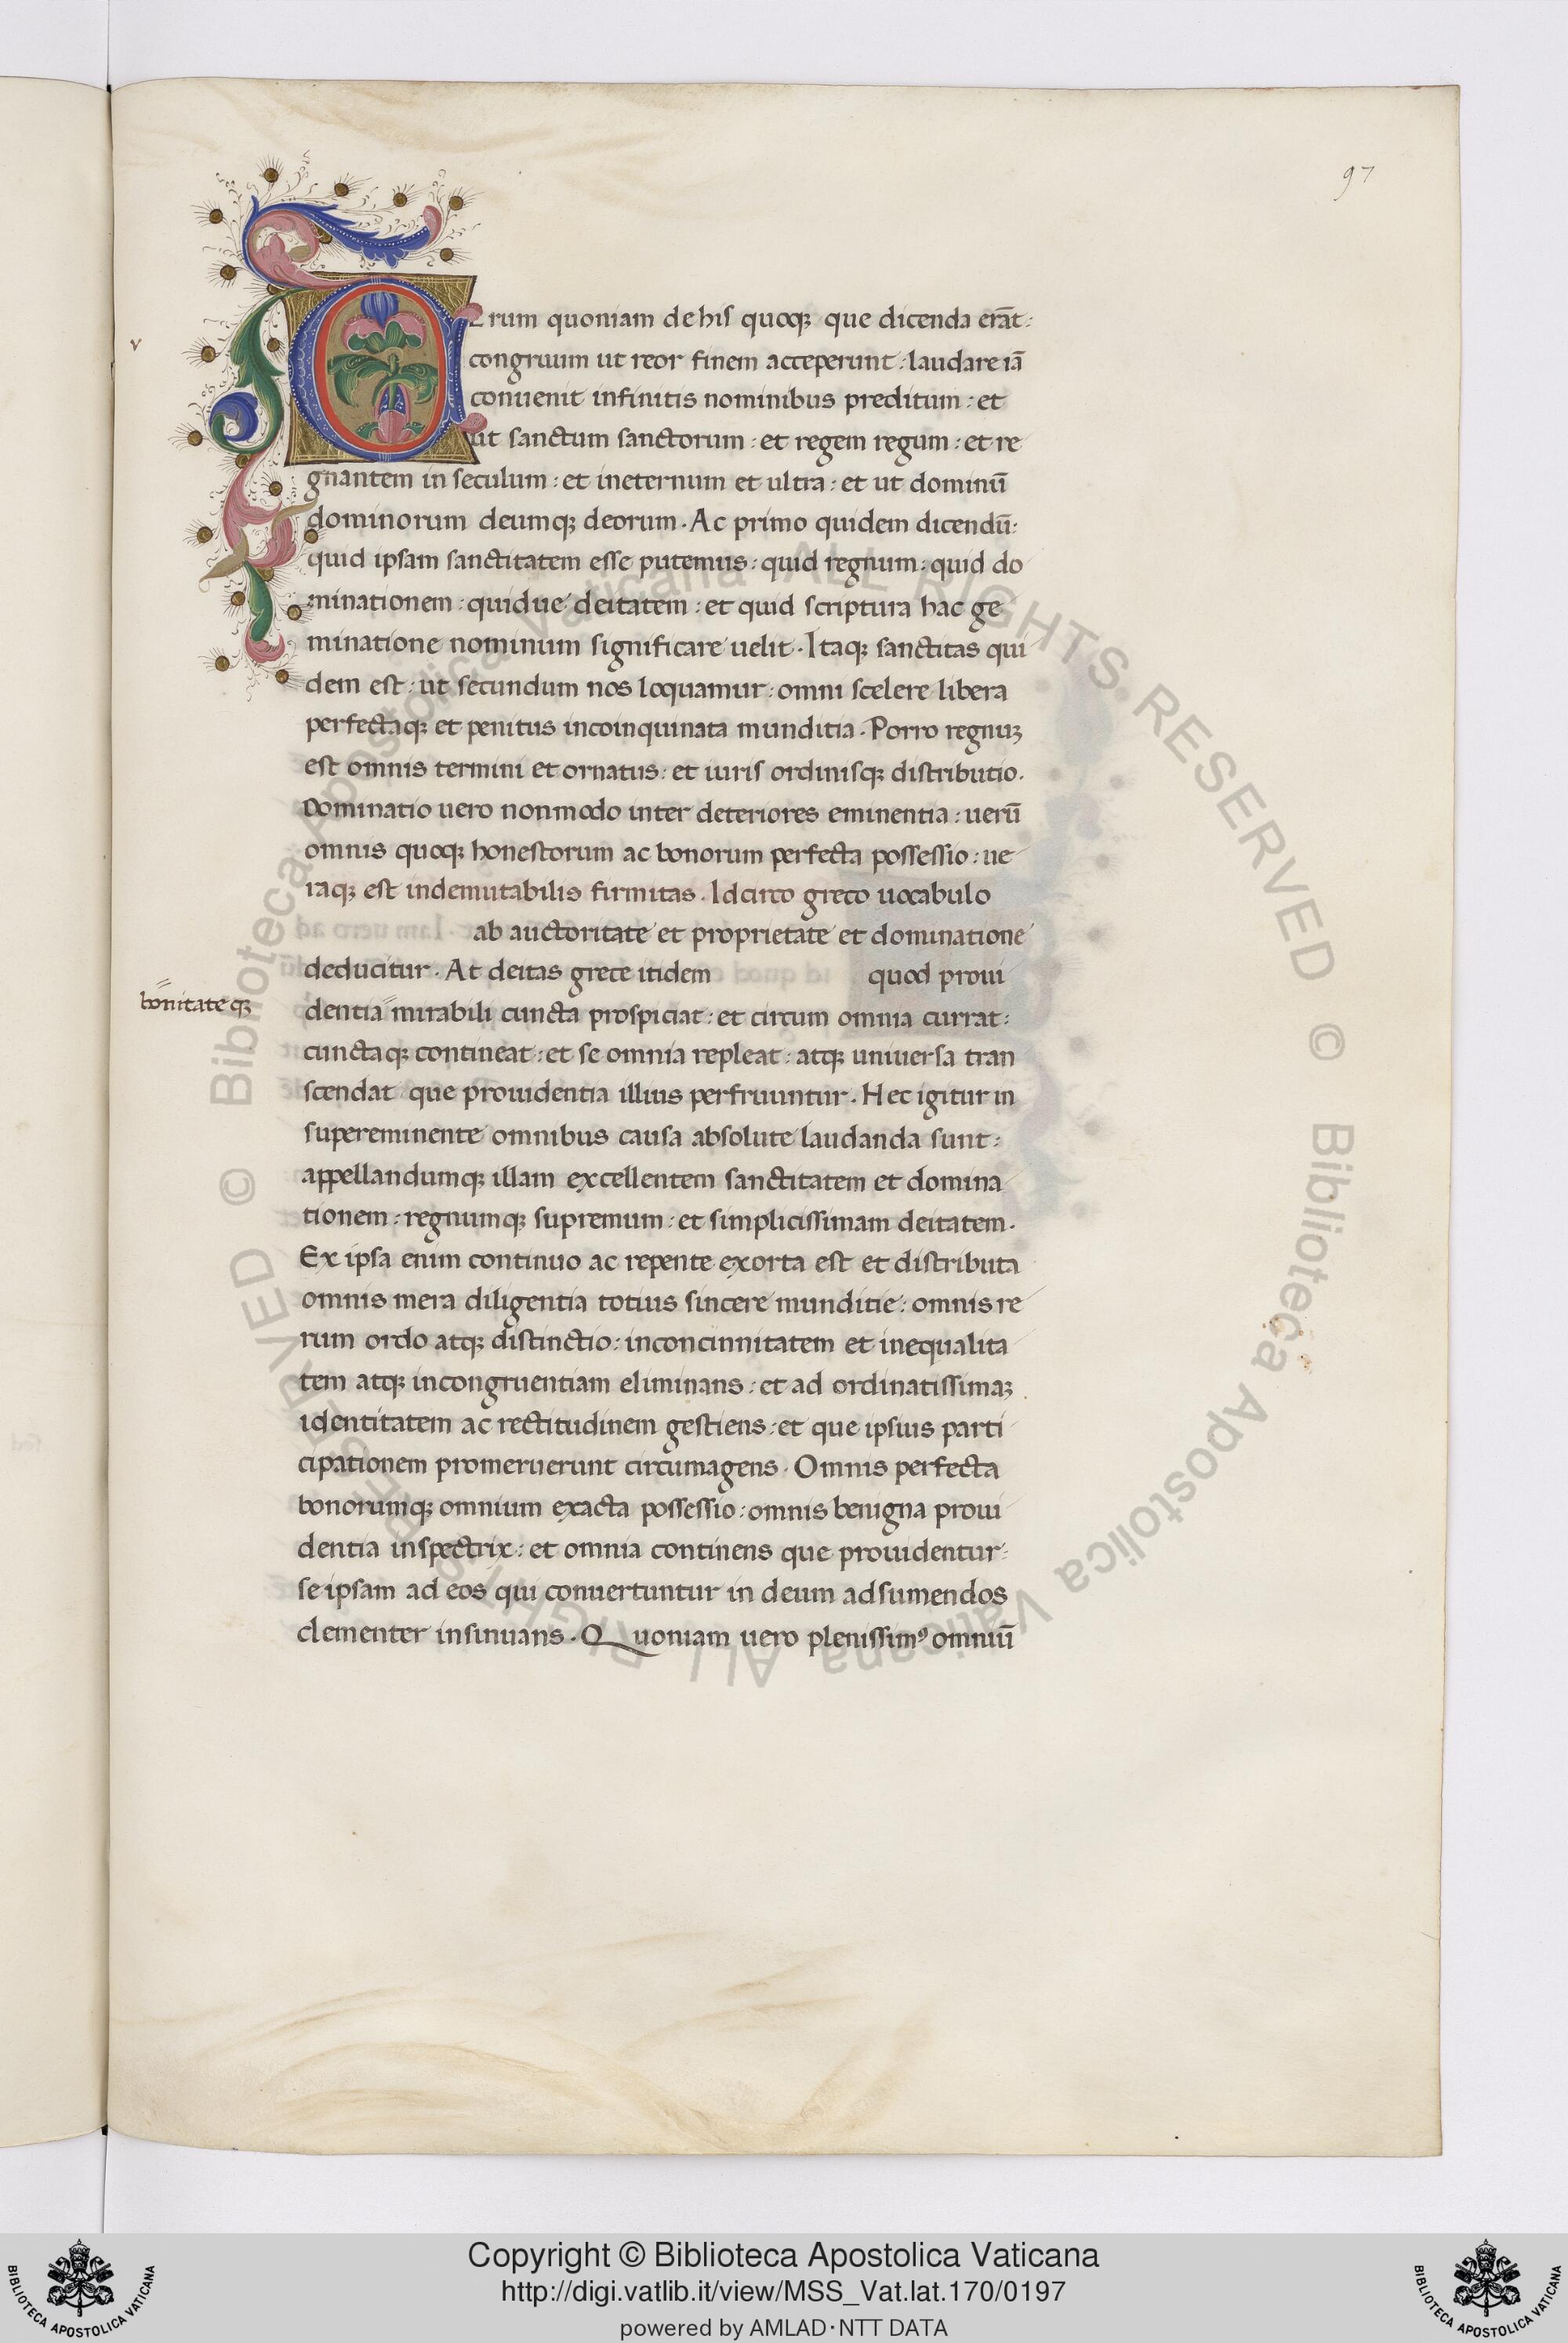 97
v
VErum quoniam de his quoqꝫ que dicenda erāt:
congruum ut reor finem acceperunt: laudare iā
conuenit infinitis nominibus preditum: et
ut sanctum sanctorum: et regem regum: et re
gnantem in seculum: et ineternum et ultra: et ut dominū
dominorum deumqꝫ deorum. Ac primo quidem dicendū:
quid ipsam sanctitatem esse putemus: quid regnum: quid do
minationem: quidue deitatem: et quid scriptura hac ge
minatione nominum significare uelit. Itaqꝫ sanctitas qui
dem est: ut secundum nos loquamur: omni scelere libera
perfectaqꝫ et penitus incoinquinata munditia. Porro regnuꝫ
est omnis termini et ornatus: et iuris ordinisqꝫ distributio.
Dominatio uero nonmodo inter deteriores eminentia: uerū
omnis quoqꝫ honestorum ac bonorum perfecta possessio: ue
raqꝫ est indemutabilis firmitas. Idcirco greco uocabulo
ab auctoritate et proprietate et dominatione
deducitur. At deitas grece itidem quod proui
bonitateqꝫ
dentia mirabili cuncta prospiciat: et circum omnia currat:
cunctaqꝫ contineat: et se omnia repleat: atqꝫ uniuersa tran
scendat que prouidentia illius perfruuntur. Hec igitur in
supereminente omnibus causa absolute laudanda sunt:
appellandumqꝫ illam excellentem sanctitatem et domina
tionem: regnumqꝫ supremum: et simplicissimam deitatem.
Ex ipsa enim continuo ac repente exorta est et distributa
omnis mera diligentia totius sincere munditie: omnis re
rum ordo atqꝫ distinctio: inconcinnitatem et inequalita
tem atqꝫ incongruentiam eliminans: et ad ordinatissimaꝫ
identitatem ac rectitudinem gestiens: et que ipsius parti
cipationem promeruerunt circumagens. Omnis perfecta
bonorumqꝫ omnium exacta possessio: omnis benigna proui
dentia inspectrix: et omnia continens que prouidentur:
se ipsam ad eos qui conuertuntur in deum adsumendos
clementer insinuans. Quoniam uero plenissimꝰ omniū
© Biblioteca Apostolica Vaticana ALL RIGHTS RESERVED
© Biblioteca Apostolica Vaticana ALL RIGHTS RESERVED
BIBLIOTECA APOSTOLICA VATICANA
Copyright © Biblioteca Apostolica Vaticana
http://digi.vatlib.it/view/MSS_Vat.lat.170/0197
powered by AMLAD·NTT DATA
BIBLIOTECA APOSTOLICA VATICANA